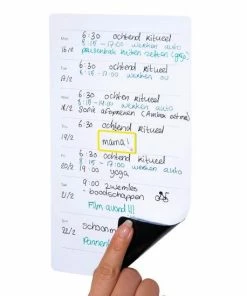 Mon
16/2
6:30 ochtend ritueel
8:15 - 17:00 werken auto
pauzenbak buiten zetten (grijs)
Tue
17/2
6:30 ochtend ritueel
8:15 - 17:00 werken ov
Wed
18/2
6:30 ochtend ritueel
8:15 - 14:00 werken auto
Sofie afspreken (Ambea osteria)
Thu
19/2
6:30 ochtend ritueel
mama!
Fri
20/2
6:30 ochtend ritueel
8:15 - 17:00 werken auto
19:00 yoga
Sat
21/2
9:00 zwemles
- boodschappen
Film avond!!!
Sun
22/2
Schoonm
Pannen